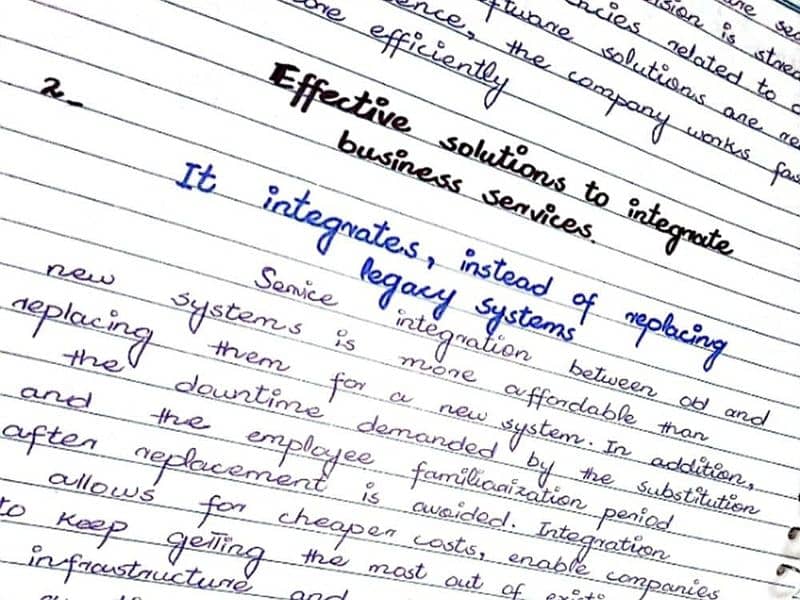 are sec
ision is stored
ncies related to a
ftware solutions are re
ence, the company works fas
more efficiently
2- Effective solutions to integrate
business services.
It integrates, instead of replacing
legacy systems
Service integration between old and
new systems is more affordable than
replacing them for a new system. In addition,
the downtime demanded by the substitution
and the employee familiarization period
after replacement is avoided. Integration
allows for cheaper costs, enable companies
to keep getting the most out of existi
infraustructure and